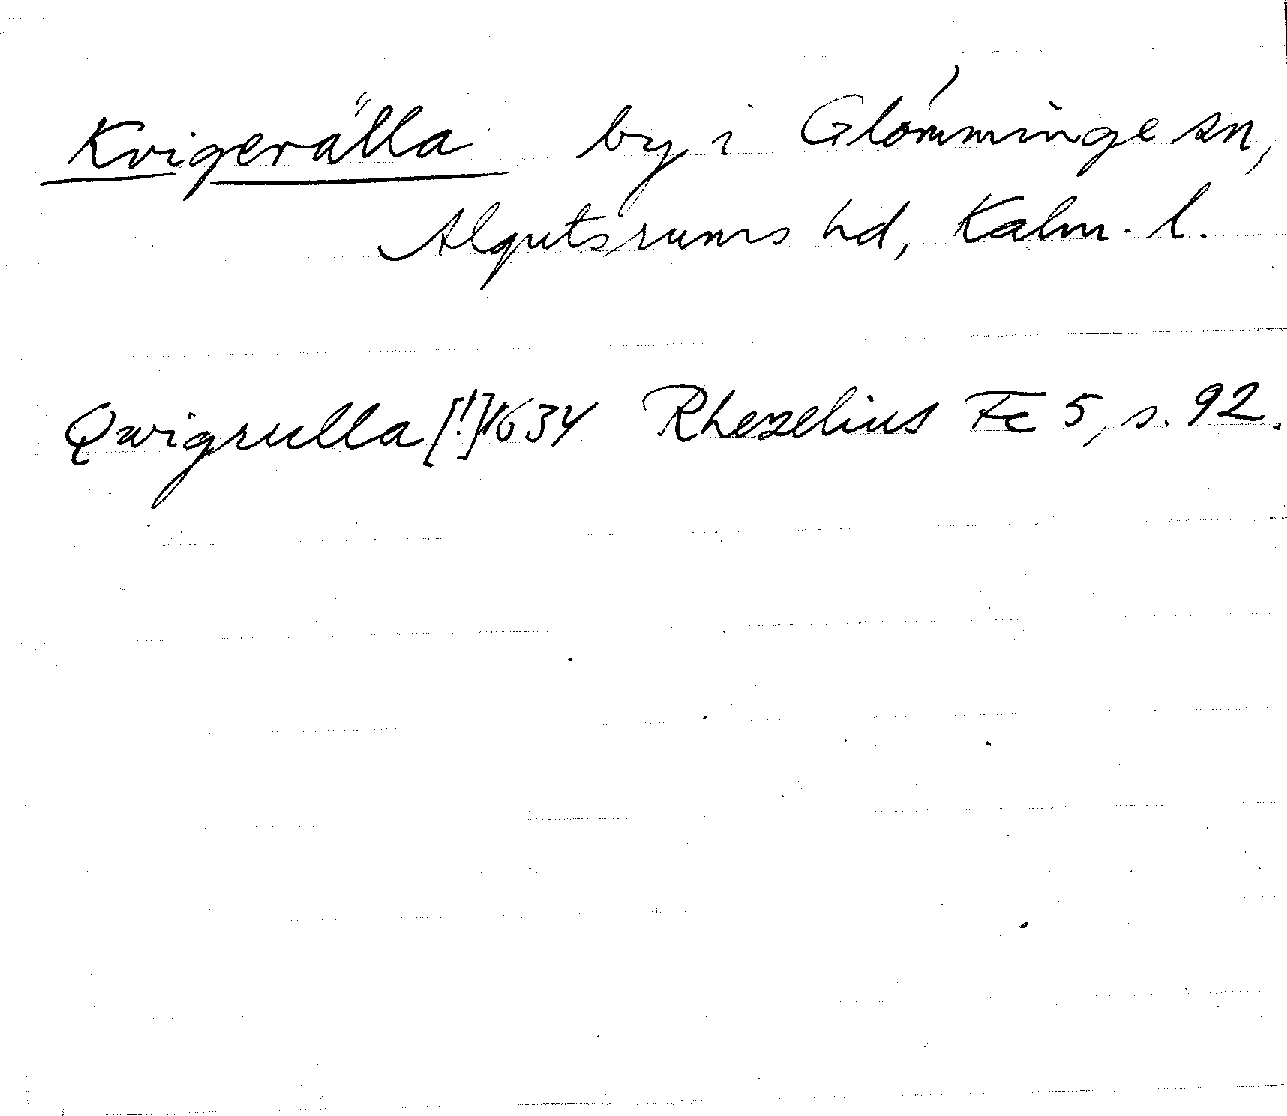 Kvigerälla by i Glömminge sn,
Algutsrums hd, Kalm. l.
Qwigrulla [!] 1634 Rhezelius Fc 5, s. 92.